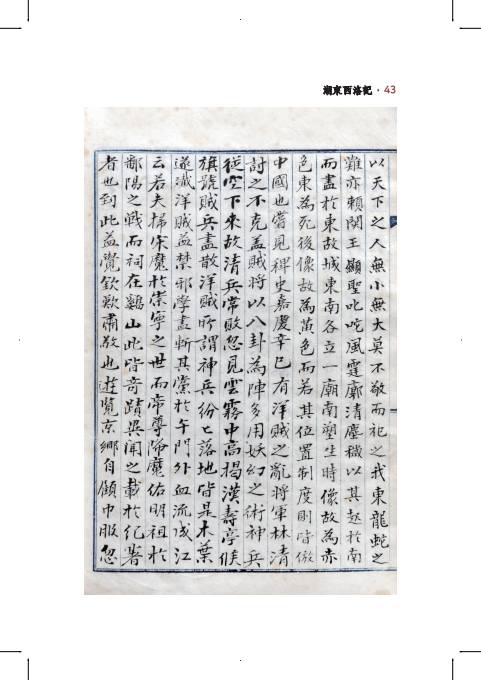 湖東西洛記 · 43
以天下之人無小無大莫不敬而祀之我東龍蛇之
難亦賴關王顯聖叱咜風霆廓清塵穢以其起於南
而盡於東故城東南各立一廟南塑生時像故為赤
色東為死後像故為黃色而若其位置制度則皆倣
中國也嘗見稗史嘉慶辛巳有洋賊之亂將軍林清
討之不克盖賊將以八卦為陣多用妖幻之術神兵
從空下來故清兵常敗忽見雲霧中高揭漢壽亭候
旗號賊兵盡散洋賊所謂神兵紛〻落地皆是木葉
遂滅洋賊益禁邪學盡斬其黨於午門外血流成江
云若夫掃宋魔於崇寧之世而帝尊降魔佑明祖於
鄱陽之戰而祠在鷄山此皆奇蹟異聞之載於紀畧
者也到此益覺欽歎肅敬也遊覽京鄉自顧巾服忽